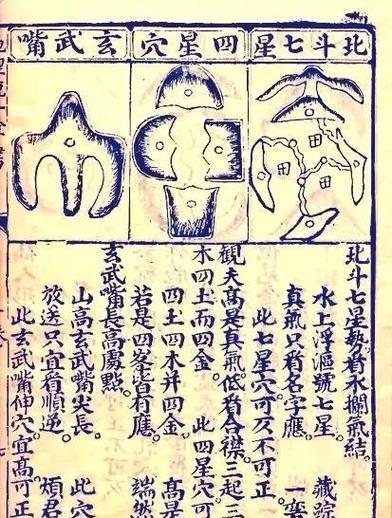 北斗七星
四星穴
玄武嘴
田
田
田
北斗七星势看水攔氣結
水上浮漚號七星
藏踪
真氣只看名字應
一
此七星穴可久不可正
觀夫高是真氣低看合襟三起三
木四土而四金
此四星穴可
四土四木并四金
高是
若是四客皆有應
端然
玄武嘴長高處點
山高玄武嘴尖長
此穴
放送只宜看順逆
煩君
此玄武嘴伸穴宜高可正